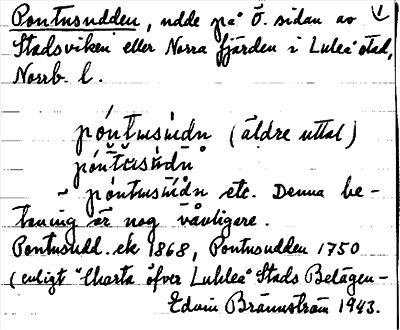 Pontusudden, udde på Ö. sidan av 1
Stadsviken eller Norra fjärden i Luleå stad,
Norrb. l.
póntusùdn (äldre uttal)
póntusùdn
~ póntusùdn etc. Denna be-
toning är nog vanligare.
Pontusudd. ek 1868, Pontusudden 1750
(enligt "Charta öfver Luhleå Stads Belägen-
Edvin Brännström 1943.